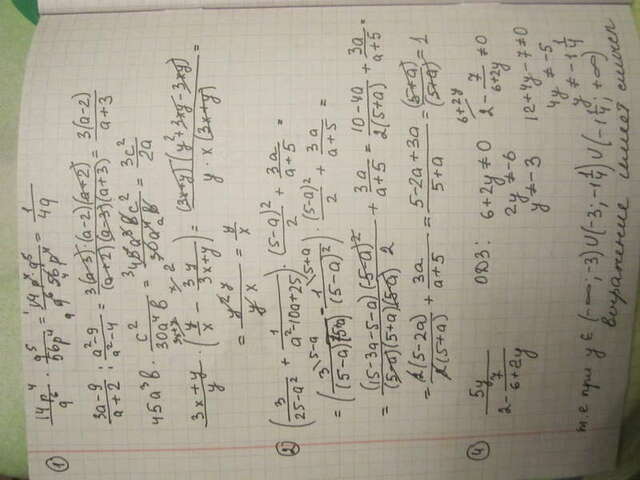 ① 14p⁴/q⁶ · q⁵/56p⁴ = 14p⁴q⁵/q⁶56p⁴ = 1/4q
3a-9/a+2 : a²-9/a²-4 = 3(a-3)·(a-2)(a+2)/(a+2)(a-3)(a+3) = 3(a-2)/a+3
45a³b · c²/30a⁴b = 45a³bc²/30a⁴b = 3c²/2a
3x+y/y · (y/x - 3y/3x+y) = (3x+y)(y²+3xy-3xy)/y·x(3x+y) =
= y²/yx = y/x
② (3/25-a² + 1/a²-10a+25) · (5-a)²/2 + 3a/a+5 =
= (3/(5-a)(5+a) + 1/(5-a)²) · (5-a)²/2 + 3a/a+5 =
= (15-3a-5-a)(5-a)²/(5-a)(5+a)(5-a)2 + 3a/a+5 = 10-4a/2(5+a) + 3a/a+5 =
= 2(5-2a)/2(5+a) + 3a/a+5 = 5-2a+3a/5+a = (5+a)/(5+a) = 1
④ 5y/2-7/6+2y ОДЗ: 6+2y≠0 2-7/6+2y≠0
2y≠-6 12+4y-7≠0
y≠-3 4y≠-5
y≠-1 1/4
т.е при y∈(-∞;-3)∪(-3;-1 1/4)∪(-1 1/4;+∞)
выражение имеет смысл